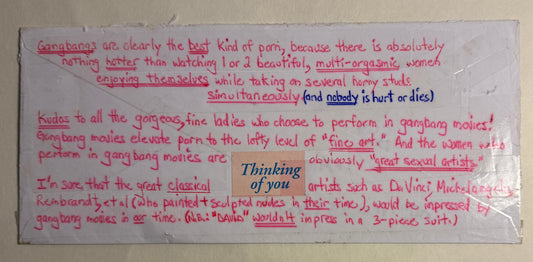 Gangbangs are clearly the best kind of porn, because there is absolutely
nothing hotter than watching 1 or 2 beautiful, multi-orgasmic women
enjoying themselves while taking on several horny studs
simultaneously (and nobody is hurt or dies)
Kudos to all the gorgeous, fine ladies who choose to perform in gangbang movies!
Gangbang movies elevate porn to the lofty level of "fine art." And the women who
perform in gangbang movies are obviously "great sexual artists."
Thinking
of you
I'm sure, that the great classical artists such as DaVinci, Michelangelo,
Rembrandt, et al (who painted + sculpted nudes in their time), would be impressed by
gangbang movies in our time. (N.B.: "DAVID" wouldn't impress in a 3-piece suit.)